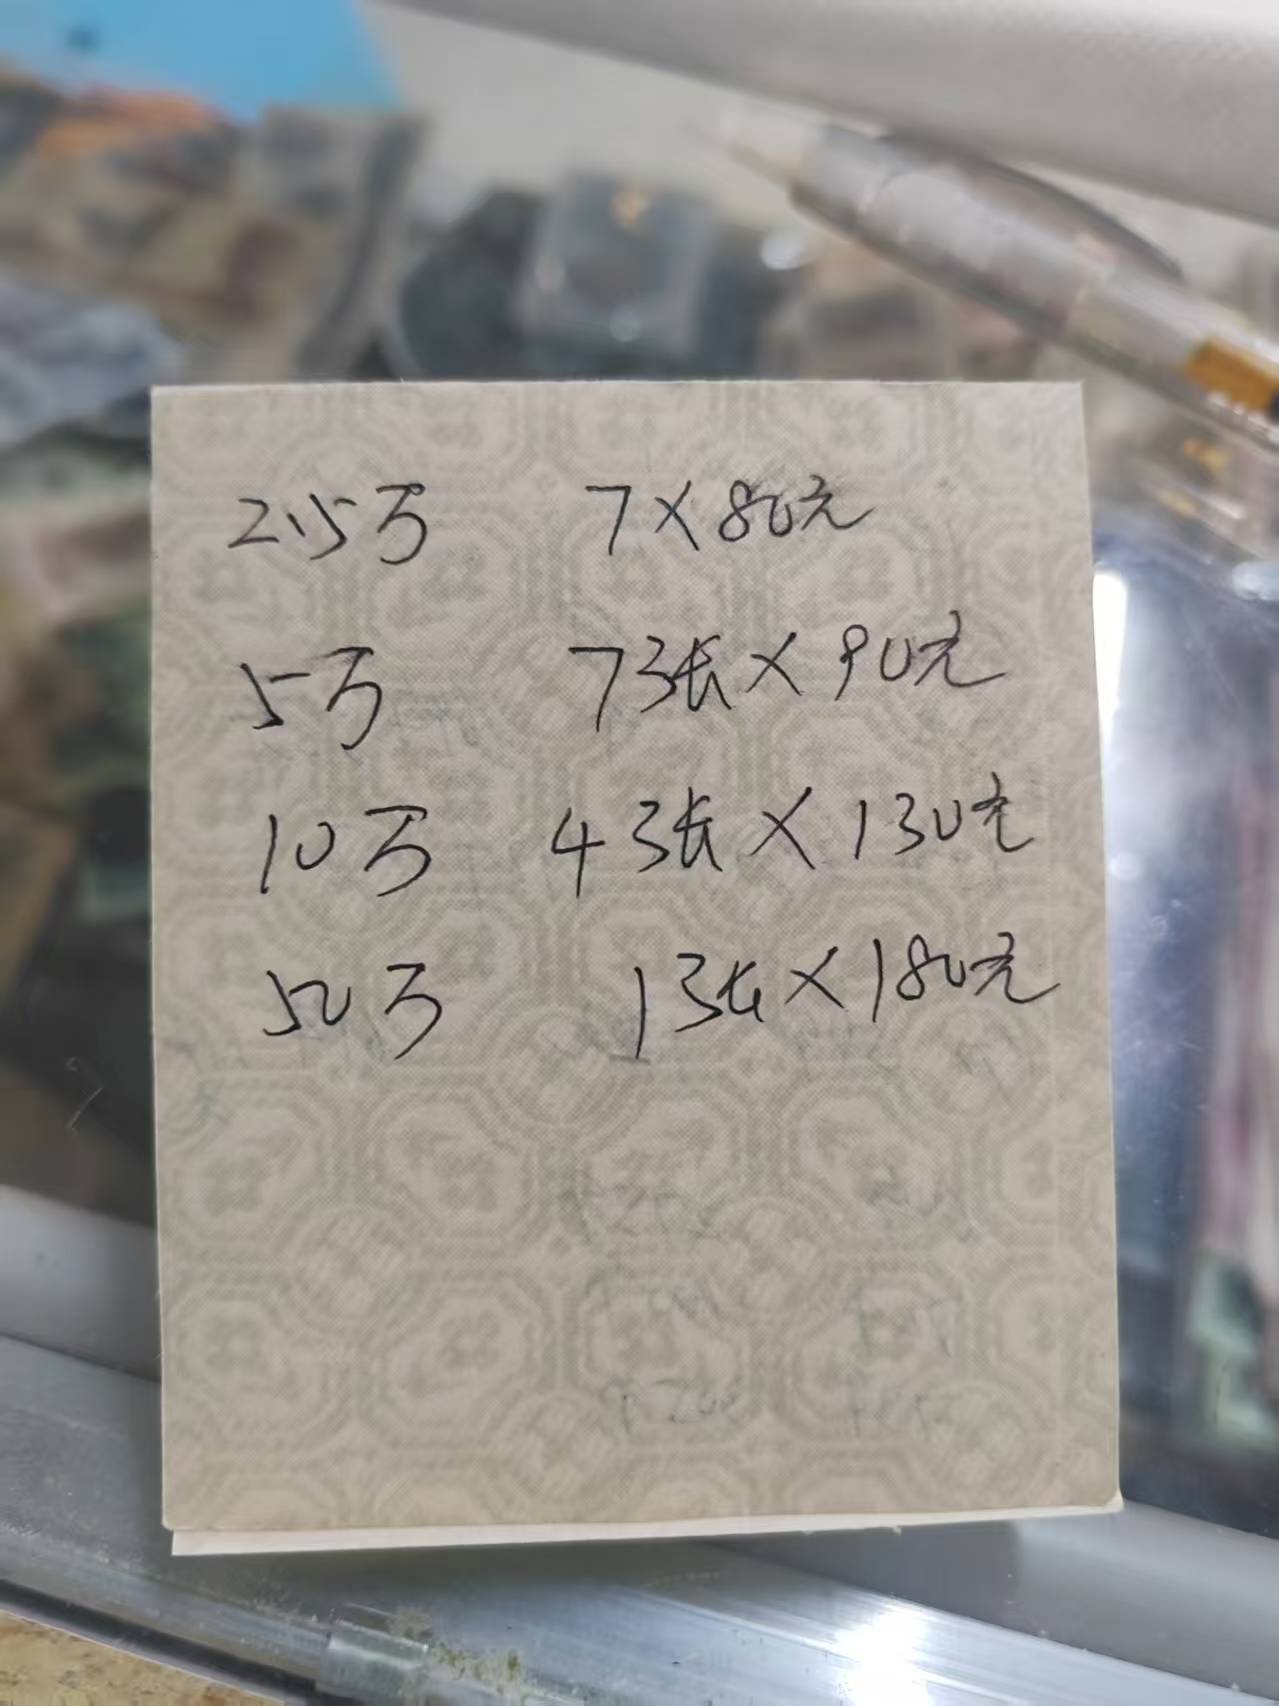 2.5万 7×80元
5万 7张×90元
10万 4张×130元
50万 1张×180元